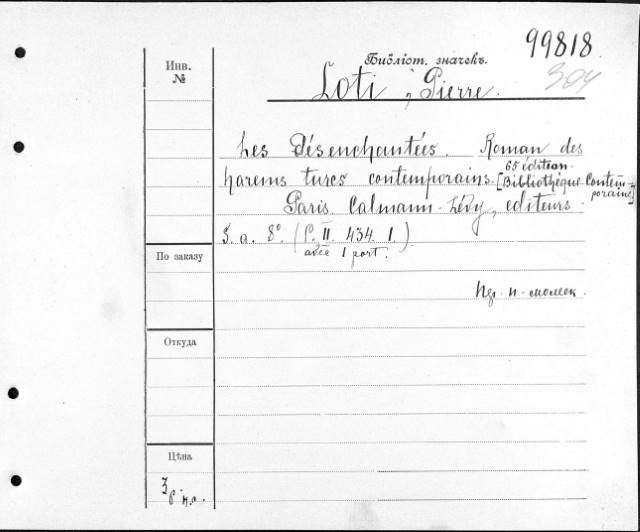 99818
304
Инв.
№
Библіот. значекъ.
Loti, Pierre.
Les Désenchantées. Roman des
65 édition.
harems turcs contemporains. [Bibliothèque Contem-
poraine]
Paris. Calmann-Lévy, editeurs.
S. a. 8°. (P. II. 434. 1.)
avec 1 port.
По заказу
Откуда
Цѣна